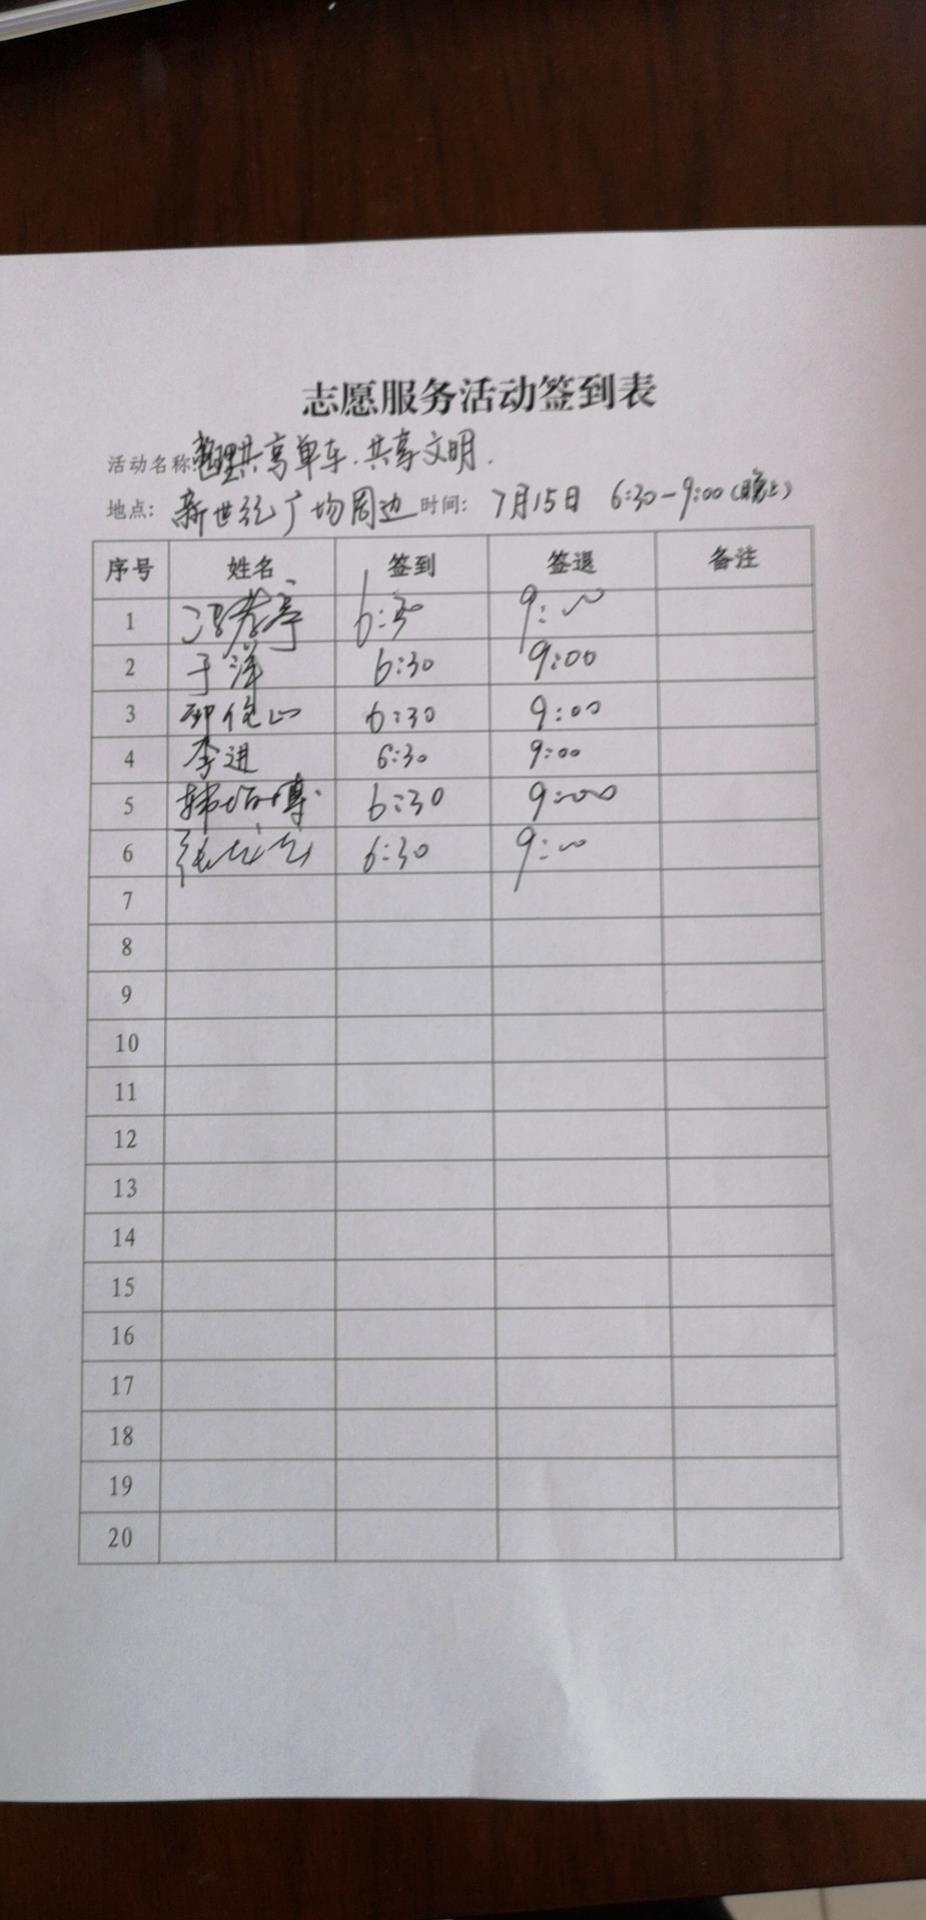 志愿服务活动签到表
活动名称:整理共享单车.共享文明.
地点: 新世纪广场周边 时间: 7月15日 6:30-9:00(晚上)
序号 姓名 签到 签退 备注
1 6:30 9:00
2 于洋 6:30 9:00
3 6:30 9:00
4 李进 6:30 9:00
5 韩 博 6:30 9:00
6 6:30 9:00
7
8
9
10
11
12
13
14
15
16
17
18
19
20